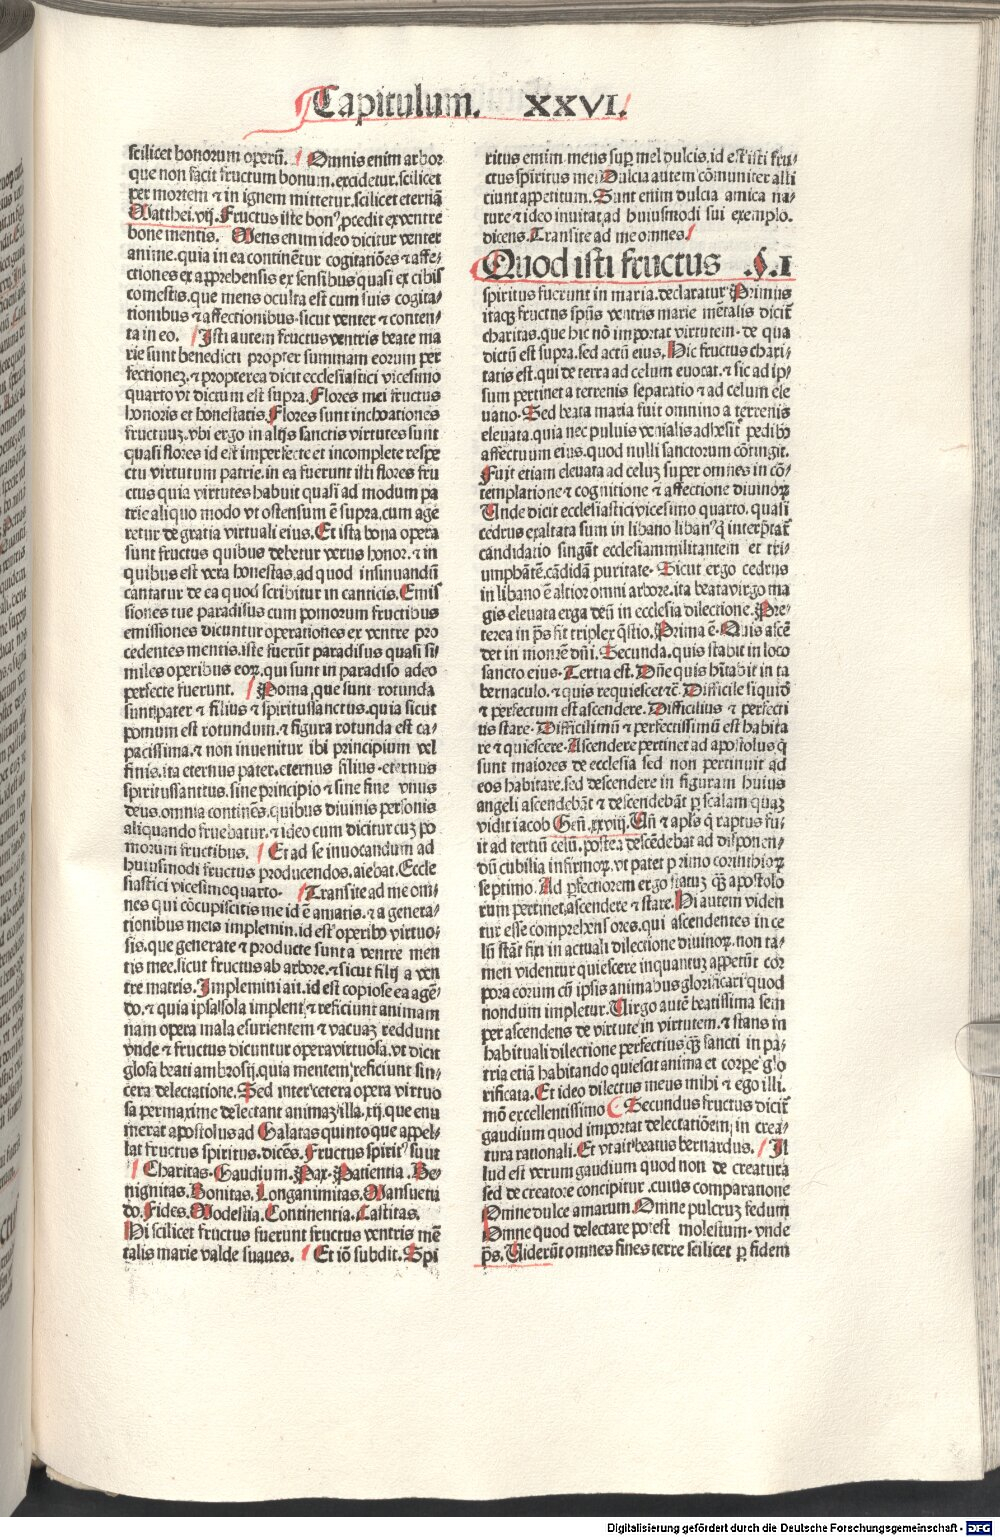 Capitulum. XXVI.
scilicet bonorum operū. Omnis enim arbor
que non facit fructum bonum. excidetur. scilicet
per mortem ⁊ in ignem mittetur. scilicet eternā
Matthei. vij. Fructus iste bonꝰ ꝓcedit ex ventre
bone mentis. Mens enim ideo dicitur venter
anime. quia in ea continētur cogitatiōes ⁊ affe⸗
ctiones ex apprehensis ex sensibus quasi ex cibis
comestis. que mens oculta est cum suis cogita⸗
tionibus ⁊ affectionibus. sicut venter ⁊ conten⸗
ta in eo. Isti autem fructus ventris beate ma
rie sunt benedicti propter summam eorum per
fectionez. ⁊ propterea dicit ecclesiastici vicesimo
quarto vt dictum est supra. Flores mei fructus
honoris et honestatis. Flores sunt inchoationes
fructuuz. vbi ergo in alijs sanctis virtutes sunt
quasi flores id est imperfecte et incomplete respe
ctu virtutum patrie. in ea fuerunt isti flores fru
ctus quia virtutes habuit quasi ad modum pa
trie aliquo modo vt ostensum ē supra. cum age
retur de gratia virtuali eius. Et ista bona opera
sunt fructus quibus debetur verus honor. ⁊ in
quibus est vera honestas. ad quod insinuandū
cantatur de ea quod scribitur in canticis. Emis
siones tue paradisus cum pomorum fructibus
emissiones dicuntur operationes ex ventre pro
cedentes mentis. iste fuerūt paradisus quasi si
miles operibus eoꝝ. qui sunt in paradiso adeo
perfecte fuerunt. Poma, que sunt rotunda
sunt pater ⁊ filius ⁊ spiritussanctus. quia sicut
pomum est rotundum. ⁊ figura rotunda est ca⸗
pacissima. ⁊ non inuenitur ibi principium vel
finis. ita eternus pater. eternus filius. eternus
spiritussanctus. sine principio ⁊ sine fine vnus
deus. omnia continēs. quibus diuinis personis
aliquando fruebatur. ⁊ ideo cum dicitur cuz po
morum fructibus. Et ad se inuocandum ad
huiusmodi fructus producendos. aiebat. Eccle
siastici vicesimoquarto. Transite ad me om⸗
nes qui cōcupiscitis me id ē amatis. ⁊ a genera⸗
tionibus meis implemini. id est operibꝰ virtuo⸗
sis. que generate ⁊ producte sunt a ventre men
tis mee. sicut fructus ab arbore. ⁊ sicut filij a ven
tre matris. Implemini ait. id est copiose ea agē⸗
do. ⁊ quia ipsa sola implent ⁊ reficiunt animam
nam opera mala esurientem ⁊ vacuaz reddunt
vnde ⁊ fructus dicuntur opera virtuosa. vt dicit
glosa beati ambrosij. quia mentem reficiunt sin⸗
cera delectatione. Sed inter cetera opera virtuo
sa permaxime delectant animaz illa. xij. que enu
merat apostolus ad Galatas quinto que appel⸗
lat fructus spiritus. dicēs. Fructus spiritꝰ sunt
Charitas. Gaudium. Pax. Patientia. Be⸗
nignitas. Bonitas. Longanimitas. Mansuetu
do. Fides. Modestia. Continentia. Castitas.
Hi scilicet fructus fuerunt fructus ventris mē
talis marie valde suaues. Et iō subdit. Spi
ritus enim meus suꝑ mel dulcis. id est isti fru⸗
ctus spiritus mei Dulcia autem cōmuniter alli
ciunt appetitum. Sunt enim dulcia amica na⸗
ture ⁊ ideo inuitat ad huiusmodi sui exemplo.
dicens. Transite ad me omnes.
Quod isti fructus .§.I
spiritus fuerunt in maria. declaratur Primus
itaqꝫ fructus spūs ventris marie mētalis dicit̄
charitas. que hic nō importat virtutem. de qua
dictū est supra. sed actū eius. Hic fructus chari⸗
tatis est. qui de terra ad celum euocat. ⁊ sic ad ip⸗
sum pertinet a terrenis separatio ⁊ ad celum ele
uatio. Sed beata maria fuit omnino a terrenis
eleuata. quia nec puluis venialis adhesit pedibꝰ
affectuum eius. quod nulli sanctorum cōtingit.
Fuit etiam eleuata ad celuz super omnes in cō⸗
templatione ⁊ cognitione ⁊ affectione diuinoꝝ
Unde dicit ecclesiastici vicesimo quarto. quasi
cedrus exaltata sum in libano libanꝰ q̄ interp̄tat̄
candidatio singāt ecclesiam militantem et tri⸗
umphātē. cādidā puritate. Sicut ergo cedrus
in libano ē altior omni arbore. ita beata virgo ma
gis eleuata erga deū in ecclesia dilectione. Pre⸗
terea in ps̄ fit triplex q̄stio. Prima ē. Quis ascē
det in montē dn̄i. Secunda. quis stabit in loco
sancto eius. Tertia est. Dn̄e quis hītabit in ta
bernaculo. ⁊ quis requiescet ⁊c̄. Difficile siquidē
⁊ perfectum est ascendere. Difficilius ⁊ perfecti
us stare. Difficilimū ⁊ perfectissimū est habita
re ⁊ quiescere. Ascendere pertinet ad apostolus q̄
sunt maiores de ecclesia sed non pertinuit ad
eos habitare. sed descendere in figuram huius
angeli ascendebāt ⁊ descendebāt ꝑ scalam quaz
vidit iacob Geñ. xxviij. Un̄ ⁊ apl̄s q̄ raptus fu⸗
it ad tertiū celū. postea descēdebat ad disponen⸗
dū cubilia infirmoꝝ. vt patet primo corinthioꝝ
septimo. Ad ꝑfectiorem ergo statuz q̄ꝫ apostolo
rum pertinet ascendere ⁊ stare. Hi autem viden
tur esse comprehensores. qui ascendentes in ce
lū stāt fixi in actuali dilectione diuinoꝝ. non ta⸗
men videntur quiescere inquantuz appetūt cor
pora eorum cū ipsis animabus glorificari quod
nondum impletur. Uirgo autē beatissima sem
per ascendens de virtute in virtutem. ⁊ stans in
habituali dilectione perfectius q̄ꝫ sancti in pa⸗
tria etiā habitando quiescit anima et corpe glo
rificata. Et ideo dilectus meus mihi ⁊ ego illi.
mō excellentissimo Secundus fructus dicit̄
gaudium quod importat delectatiōem in crea⸗
tura rationali. Et vt ait beatus bernardus. Il
lud est verum gaudium quod non de creatura
sed de creatore concipitur. cuius comparatione
Omne dulce amarum Omne pulcruz fedum
Omne quod delectare potest molestum. vnde
ps̄. Uiderūt omnes fines terre scilicet ꝑ fidem
Digitalisierung gefördert durch die Deutsche Forschungsgemeinschaft - DFG